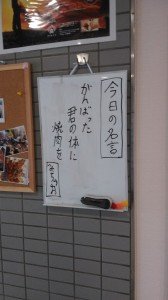 今日の名言
がんばった
君の体に
焼肉を